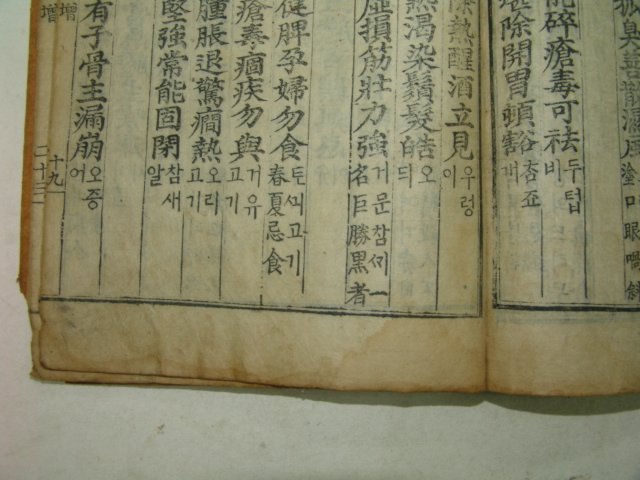 口眼喎斜
能碎瘡毒可祛두텁비
堪除開胃頓豁죠개
除熱醒酒立見우렁이
熱渴染鬚髮皓오듸
虛損筋壯力強거문참ᄭᅢ一名巨勝黑者
健脾孕婦勿食토ᄭᅵ고기春夏忌食
瘡毒痼疾勿與거유고기
腫脹退驚癎熱오리고기
堅強常能固閉참새알
有子骨主漏崩오증어
增
十九
增
二十三